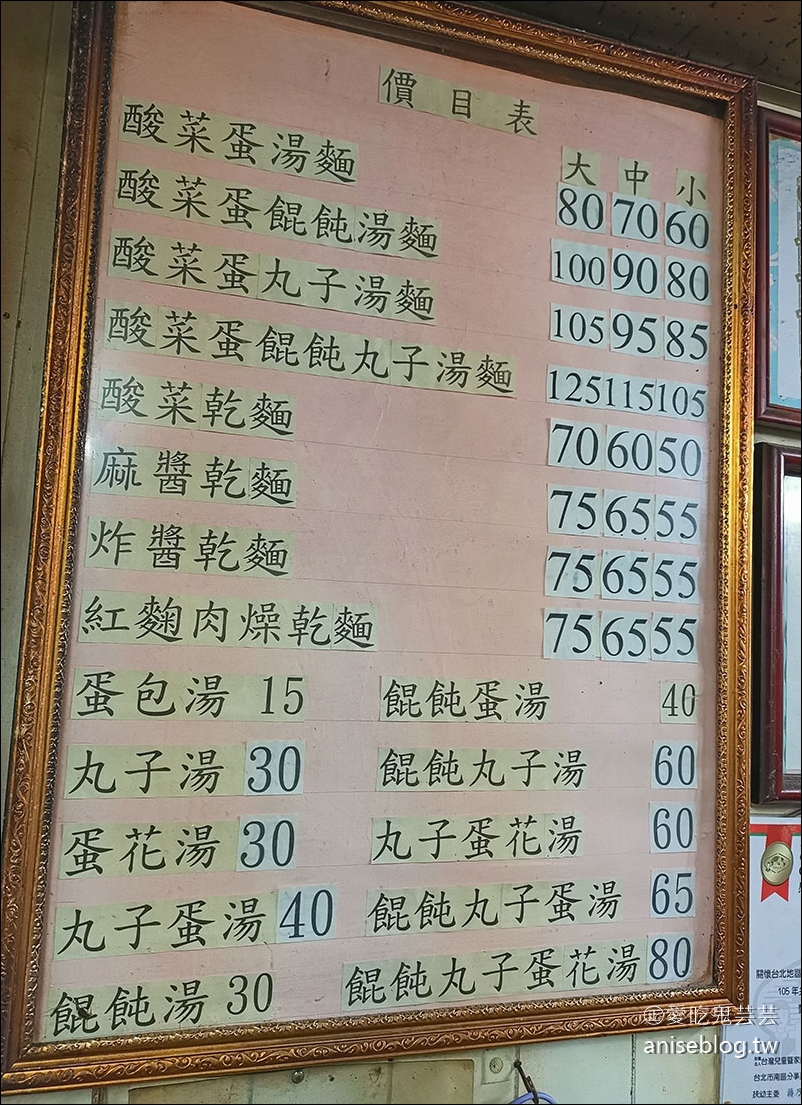 價目表
大 中 小
酸菜蛋湯麵 80 70 60
酸菜蛋餛飩湯麵 100 90 80
酸菜蛋丸子湯麵 105 95 85
酸菜蛋餛飩丸子湯麵 125 115 105
酸菜乾麵 70 60 50
麻醬乾麵 75 65 55
炸醬乾麵 75 65 55
紅麴肉燥乾麵 75 65 55
蛋包湯 15 餛飩蛋湯 40
丸子湯 30 餛飩丸子湯 60
蛋花湯 30 丸子蛋花湯 60
丸子蛋湯 40 餛飩丸子蛋湯 65
餛飩湯 30 餛飩丸子蛋花湯 80
愛吃鬼芸芸
aniseblog.tw
關懷台北地區
105年
台灣兒童暨家
台北市南區分事
扶幼主委